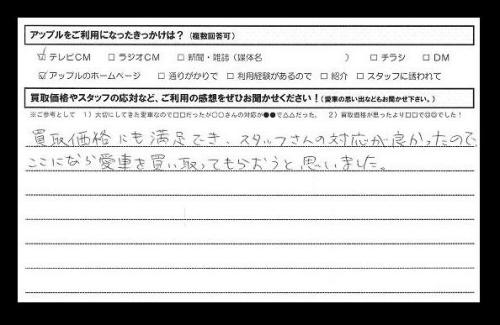 アップルをご利用になったきっかけは？（複数回答可）
☑ テレビCM □ ラジオCM □ 新聞・雑誌（媒体名 ） □ チラシ □ DM
☑ アップルのホームページ □ 通りがかりで □ 利用経験があるので □ 紹介 □ スタッフに誘われて
買取価格やスタッフの応対など、ご利用の感想をぜひお聞かせください！（愛車の思い出などもお聞かせ下さい。）
※ご参考として 1）大切にしてきた愛車なので□□だったが○○さんの対応が●●で△△だった。 2）買取価格が思ったより□□で◎◎でした！
買取価格にも満足でき、スタッフさんの対応が良かったので
ここになら愛車を買い取ってもらおうと思いました。